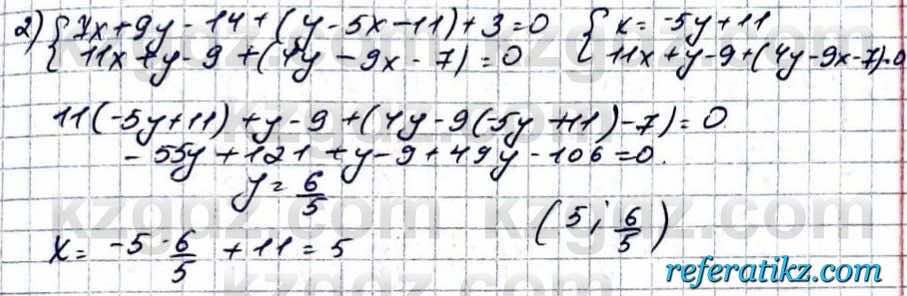 2) { 7x+9y-14+(y-5x-11)+3=0 { x=-5y+11
11x+y-9+(4y-9x-7)=0 11x+y-9+(4y-9x-7)=0
11(-5y+11)+y-9+(4y-9(-5y+11)-7)=0
-55y+121+y-9+49y-106=0.
y=6/5
x=-5·6/5+11=5 (5; 6/5)
referatikz.com